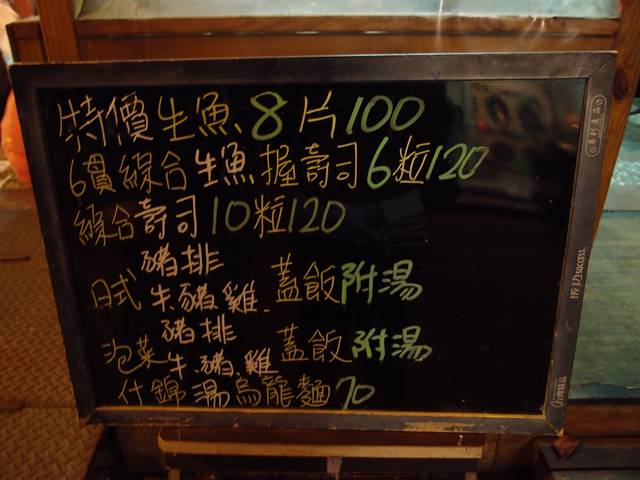 特價生魚8片100
6貫綜合生魚握壽司6粒120
綜合壽司10粒120
豬排
日式 牛.豬.雞. 蓋飯附湯
豬排
泡菜 牛.豬.雞 蓋飯附湯
什錦湯烏龍麵70
成功success.